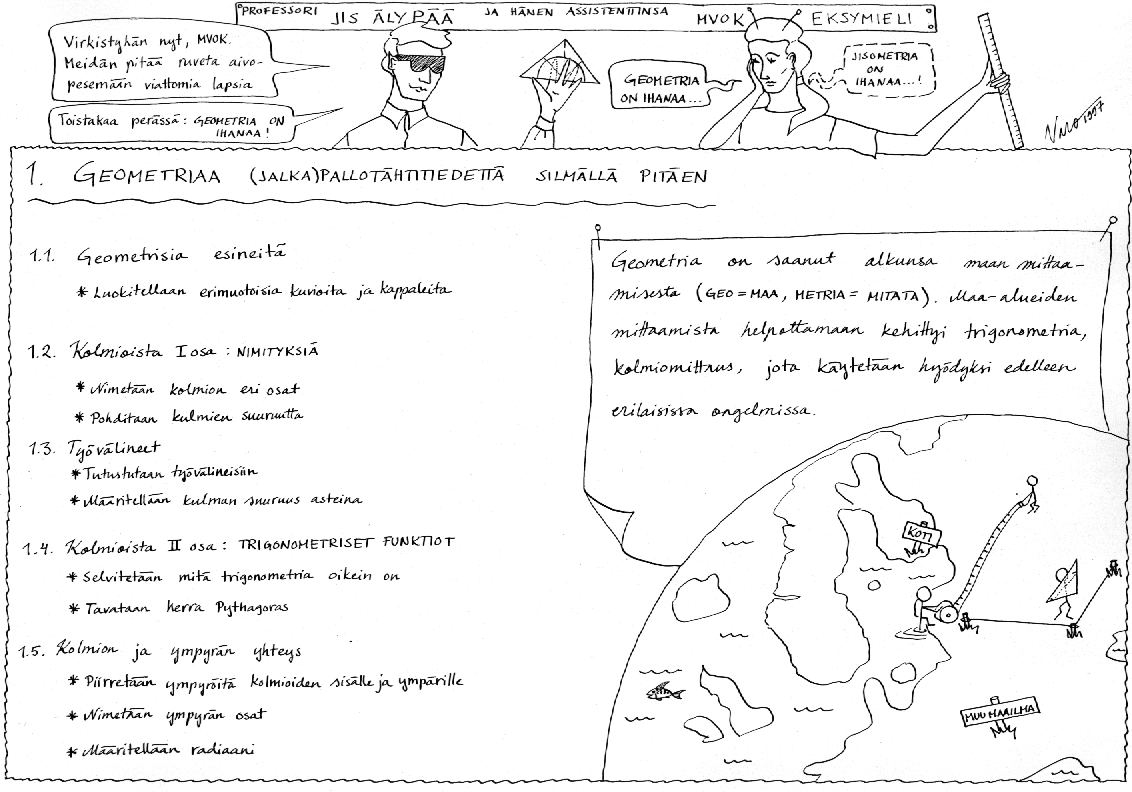 PROFESSORI JIS ÄLYPÄÄ JA HÄNEN ASSISTENTTINSA MVOK EKSYMIELI
Virkistyhän nyt, MVOK.
Meidän pitää ruveta aivo-
pesemään viattomia lapsia
Toistakaa perässä: GEOMETRIA ON
IHANAA!
GEOMETRIA
ON IHANAA...
JISOMETRIA
ON
IHANAA...!
1. GEOMETRIAA (JALKA)PALLOTÄHTITIEDETTÄ SILMÄLLÄ PITÄEN
1.1. Geometrisia esineitä
* Luokitellaan erimuotoisia kuvioita ja kappaleita
1.2. Kolmioista I osa : NIMITYKSIÄ
* Nimetään kolmion eri osat
* Pohditaan kulmien suuruutta
1.3. Työvälineet
* Tutustutaan työvälineisiin
* Määritellään kulman suuruus asteina
1.4. Kolmioista II osa : TRIGONOMETRISET FUNKTIOT
* Selvitetään mitä trigonometria oikein on
* Tavataan herra Pythagoras
1.5. Kolmion ja ympyrän yhteys
* Piirretään ympyröitä kolmioiden sisälle ja ympärille
* Nimetään ympyrän osat
* Määritellään radiaani
Geometria on saanut alkunsa maan mittaa-
misesta (GEO = MAA, METRIA = MITATA). Maa-alueiden
mittaamista helpottamaan kehittyi trigonometria,
kolmiomittaus, jota käytetään hyödyksi edelleen
erilaisissa ongelmissa.
KOTI
MUU MAAILMA